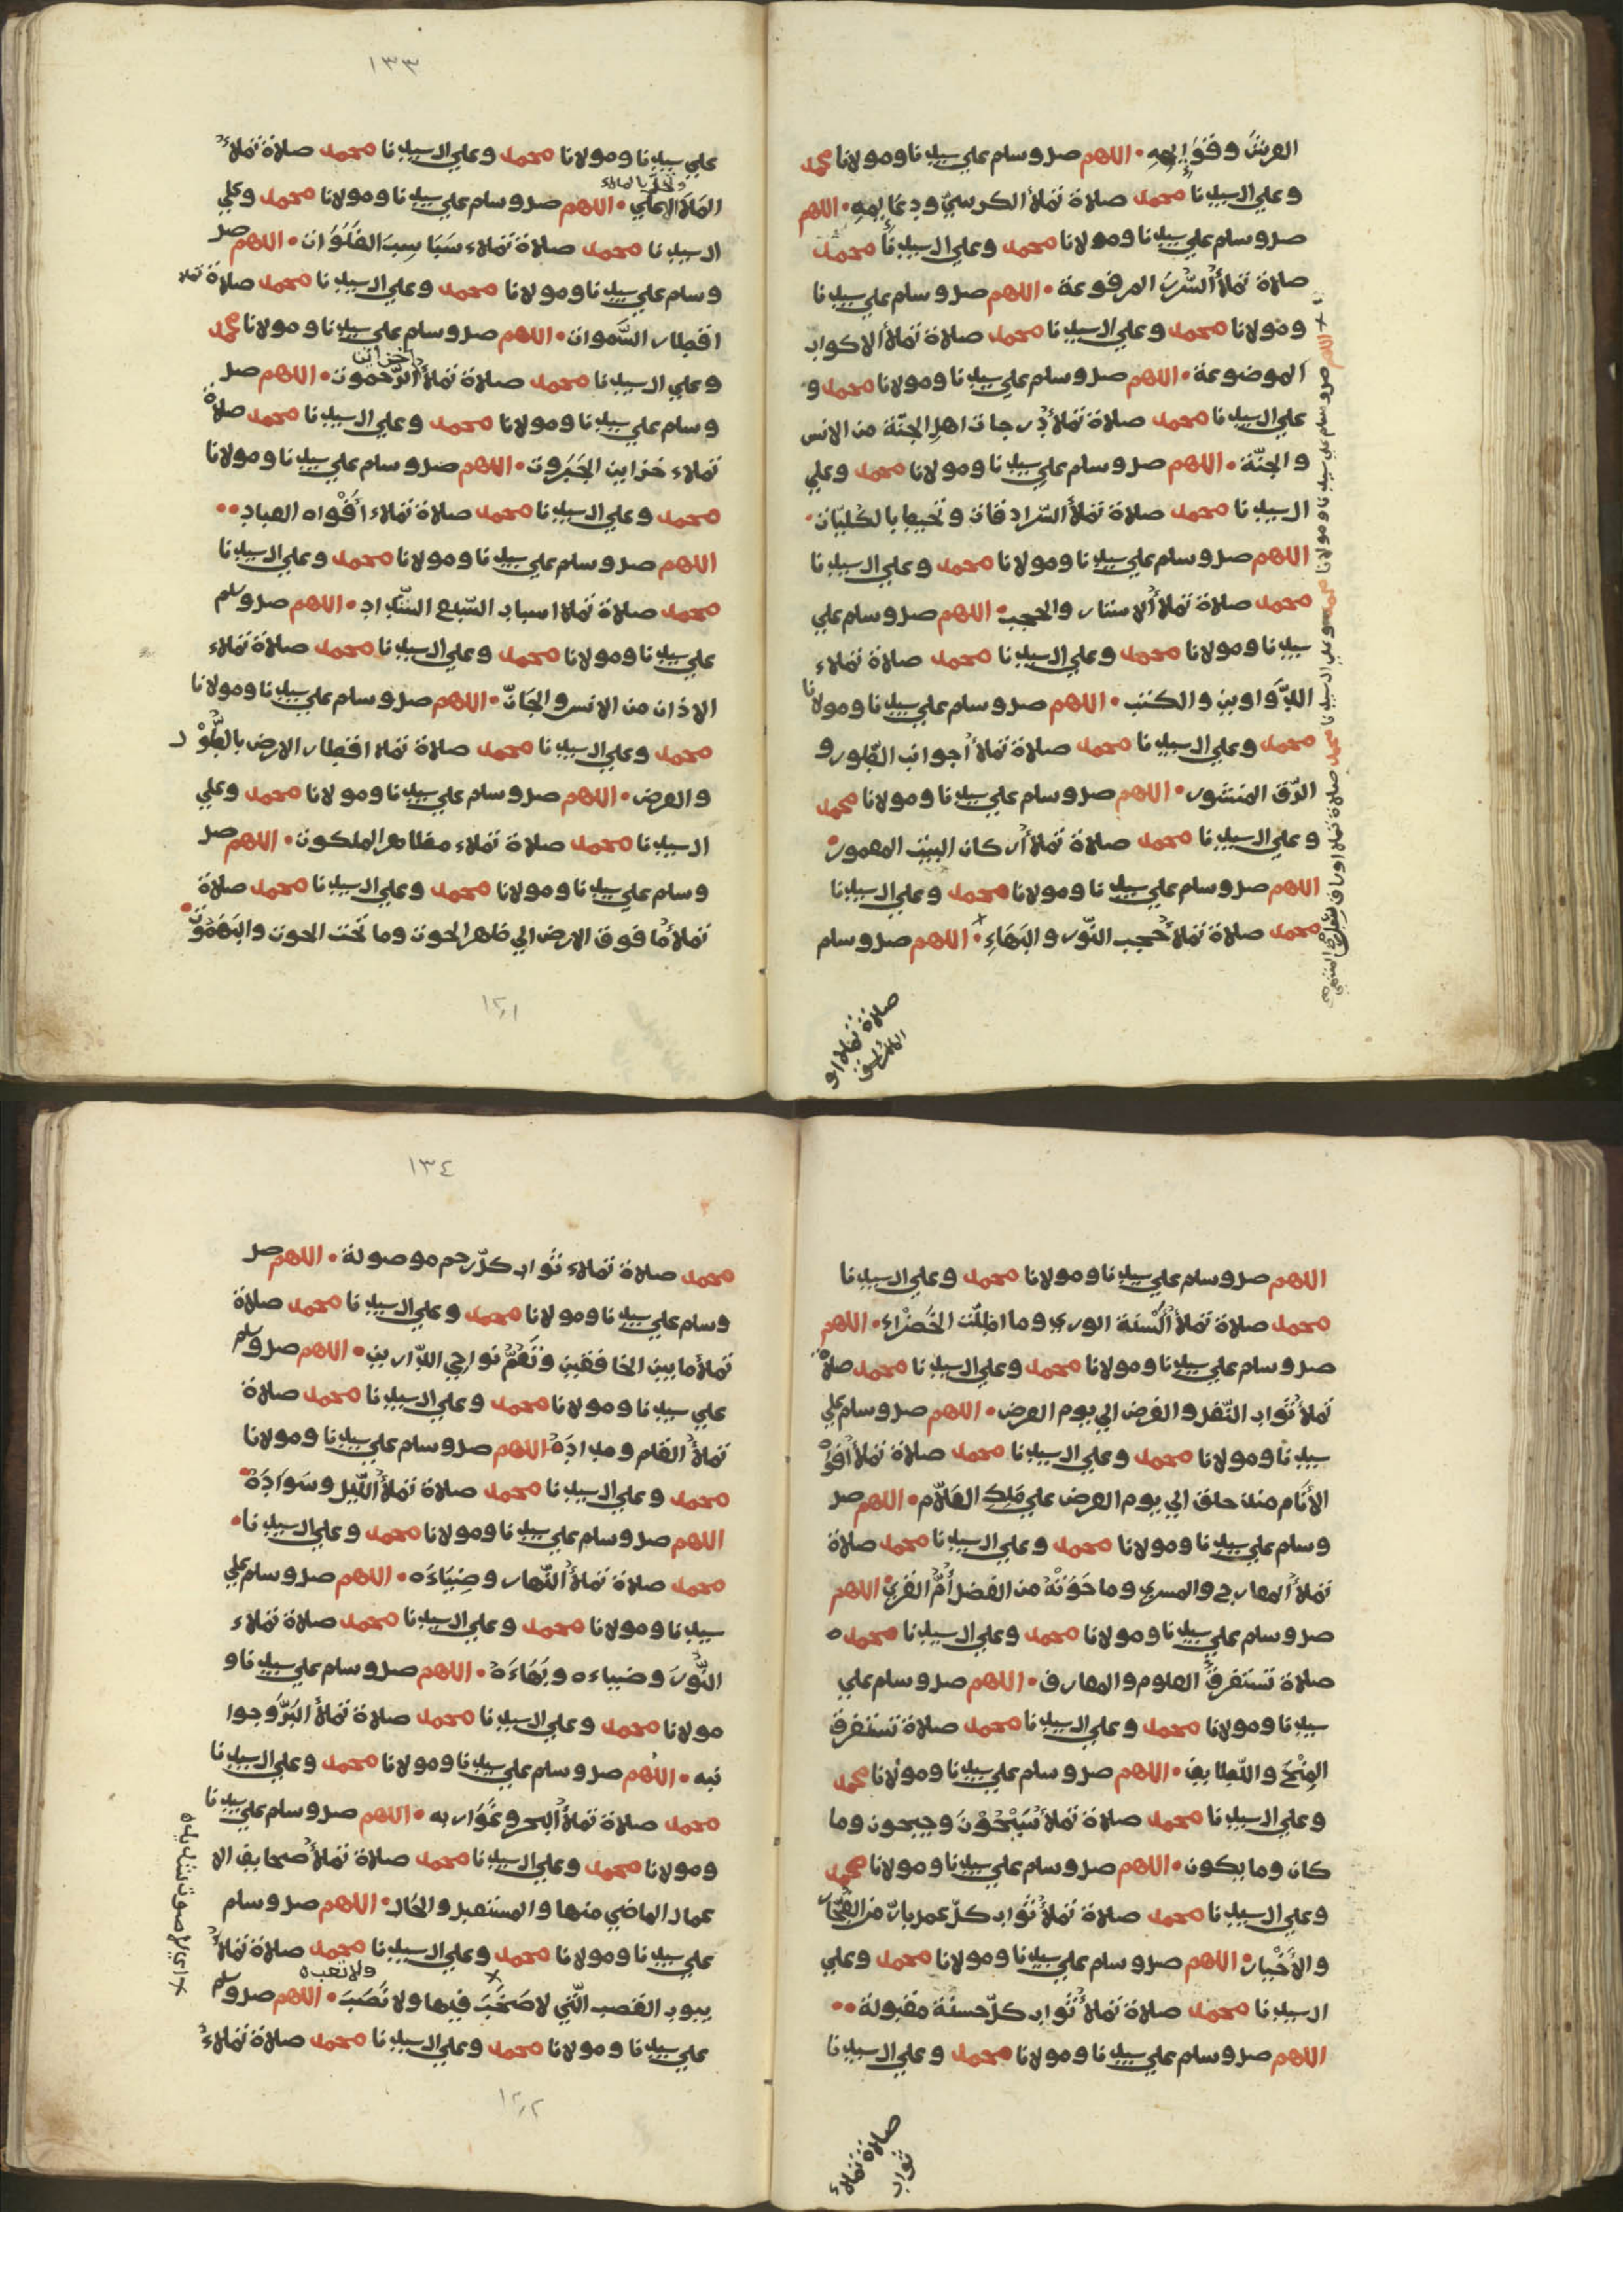 العرش وقوايمه • اللهم صل وسلم علي سيدنا ومولانا محمد
وعلي ال سيدنا محمد صلاة تملأ الكرسي ودعايمه • اللهم
صل وسلم علي سيدنا ومولانا محمد وعلي ال سيدنا محمد
صلاة تملأ السُّرُرَ المرفوعة • اللهم صل وسلم علي سيدنا
ومولانا محمد وعلي ال سيدنا محمد صلاة تملأ الاكواب
الموضوعة • اللهم صل وسلم علي سيدنا ومولانا محمد و
علي ال سيدنا محمد صلاة تملأ درجات اهل الجنّة من الانس
والجنّة • اللهم صل وسلم علي سيدنا ومولانا محمد وعلي
ال سيدنا محمد صلاة تملأ السّرادقات وتحيط بالكليّات •
اللهم صل وسلم علي سيدنا ومولانا محمد وعلي ال سيدنا
محمد صلاة تملأ الاستار والحجب • اللهم صل وسلم علي
سيدنا ومولانا محمد وعلي ال سيدنا محمد صلاة تملاء
الدَّوَاوين والكتب • اللهم صل وسلم علي سيدنا ومولانا
محمد وعلي ال سيدنا محمد صلاة تملأ اجوانب الطّور و
الرّق المنشور • اللهم صل وسلم علي سيدنا ومولانا محمد
وعلي ال سيدنا محمد صلاة تملأ اركان البيت المعمور •
اللهم صل وسلم علي سيدنا ومولانا محمد وعلي ال سيدنا
محمد صلاة تملأ حجب النّور والبَهَاءِ • اللهم صل وسلم
× اللهم صل وسلم علي سيدنا ومولانا محمد وعلي ال سيدنا محمد صلاة تملاء اوراق سدرة المنتهي
صلاة تملاء
علي سيدنا ومولانا محمد وعلي ال سيدنا محمد صلاة تملأ
المَلَأ الاعلي • اللهم صل وسلم علي سيدنا ومولانا محمد وعلي
ال سيدنا محمد صلاة تملاء سَبَاسِبَ الفَلَوَات • اللهم صل
وسلم علي سيدنا ومولانا محمد وعلي ال سيدنا محمد صلاة تملا
اقطار السَّموات • اللهم صل وسلم علي سيدنا ومولانا محمد
خزاين
وعلي ال سيدنا محمد صلاة تملأ الرَّحموت • اللهم صل
وسلم علي سيدنا ومولانا محمد وعلي ال سيدنا محمد صلاة
تملاء خزاين الجَبَروت • اللهم صل وسلم علي سيدنا ومولانا
محمد وعلي ال سيدنا محمد صلاة تملاء اَفْوَاه العباد ••
اللهم صل وسلم علي سيدنا ومولانا محمد وعلي ال سيدنا
محمد صلاة تملاء اسباب السّبع الشّداد • اللهم صل وسلم
علي سيدنا ومولانا محمد وعلي ال سيدنا محمد صلاة تملاء
الاذان من الانس والجَانّ • اللهم صل وسلم علي سيدنا ومولانا
محمد وعلي ال سيدنا محمد صلاة تملا اقطار الارض بالطُّوْل
والعرض • اللهم صل وسلم علي سيدنا ومولانا محمد وعلي
ال سيدنا محمد صلاة تملاء مظاهر الملكوت • اللهم صل
وسلم علي سيدنا ومولانا محمد وعلي ال سيدنا محمد صلاة
تملأ ما فوق الارض الي ظهر الحوت وما تحت الحوت والبَهَمُوت
١٣٣
اللهم صل وسلم علي سيدنا ومولانا محمد وعلي ال سيدنا
محمد صلاة تملأ أَلْسُنَة الوري وما اظلّت الخَضْرَاء • اللهم
صل وسلم علي سيدنا ومولانا محمد وعلي ال سيدنا محمد صلاة
تملأ ثواب النّفل والفرض الي يوم العرض • اللهم صل وسلم علي
سيدنا ومولانا محمد وعلي ال سيدنا محمد صلاة تملأ أفواه
الأَنَام منذ خلق الي يوم العرض علي مَلِك العَلاّم • اللهم صل
وسلم علي سيدنا ومولانا محمد وعلي ال سيدنا محمد صلاة
تملأ المعارج والمسري وما حَوَتْهُ من الفضل أُمُّ القُري • اللهم
صل وسلم علي سيدنا ومولانا محمد وعلي ال سيدنا محمد
صلاة تستغرق العلوم والمعارف • اللهم صل وسلم علي
سيدنا ومولانا محمد وعلي ال سيدنا محمد صلاة تستغرق
المِنَحَ واللّطايف • اللهم صل وسلم علي سيدنا ومولانا محمد
وعلي ال سيدنا محمد صلاة تملأ سَيْحُوْنَ وجيحون وما
كان وما يكون • اللهم صل وسلم علي سيدنا ومولانا محمد
وعلي ال سيدنا محمد صلاة تملأ ثواب كلّ عمل بارّ من الفجّار
والأَخْيار • اللهم صل وسلم علي سيدنا ومولانا محمد وعلي
ال سيدنا محمد صلاة تملأ ثواب كلّ حسنة مقبولة ••
اللهم صل وسلم علي سيدنا ومولانا محمد وعلي ال سيدنا
صلاة تملأ
ثواب
١٣٤
محمد صلاة تملاء ثواب كلّ رحم موصولة • اللهم صل
وسلم علي سيدنا ومولانا محمد وعلي ال سيدنا محمد صلاة
تملأ ما بين الخافقين وتَعُمُّ نواحي الدّارين • اللهم صل وسلم
علي سيدنا ومولانا محمد وعلي ال سيدنا محمد صلاة
تملأ القلم ومدادَه • اللهم صل وسلم علي سيدنا ومولانا
محمد وعلي ال سيدنا محمد صلاة تملأ اللّيل وسَوَادَهُ •
اللهم صل وسلم علي سيدنا ومولانا محمد وعلي ال سيدنا •
محمد صلاة تملأ النّهار وضِيَاءَه • اللهم صل وسلم علي
سيدنا ومولانا محمد وعلي ال سيدنا محمد صلاة تملاء
النُّورَ وضياءه وبَهَاءَهُ • اللهم صل وسلم علي سيدنا و
مولانا محمد وعلي ال سيدنا محمد صلاة تملأ البَرَّ وجوا
نبه • اللهم صل وسلم علي سيدنا ومولانا محمد وعلي ال سيدنا
محمد صلاة تملأ البحر وغَوَاربه • اللهم صل وسلم علي سيدنا
ومولانا محمد وعلي ال سيدنا محمد صلاة تملأ صحايف الا
عمال الماضي منها والمستقبل والحَال • اللهم صل وسلم
علي سيدنا ومولانا محمد وعلي ال سيدنا محمد صلاة تملأ
ولا تعب ه
بيوت القصب الّتي لا صَخَبَ فيها ولا نَصَبَ • اللهم صل وسلم
علي سيدنا ومولانا محمد وعلي ال سيدنا محمد صلاة تملاء
× اي لا صوت شديد ه